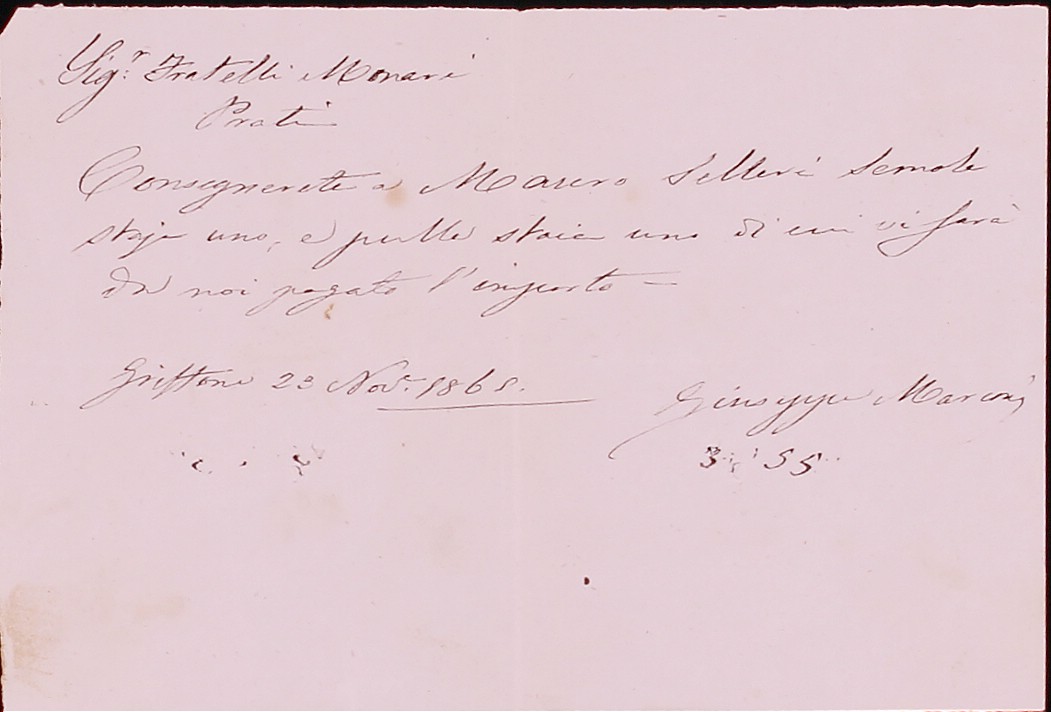 Sig.r Fratelli Monari
Prati
Consegnerete a Mauro Selleri Semole
staja uno, e pulle staia uno di cui vi sarà
da noi pagato l'importo =
Griffone 23 Nov.e 1861.
Giuseppe Marconi
3 : 55